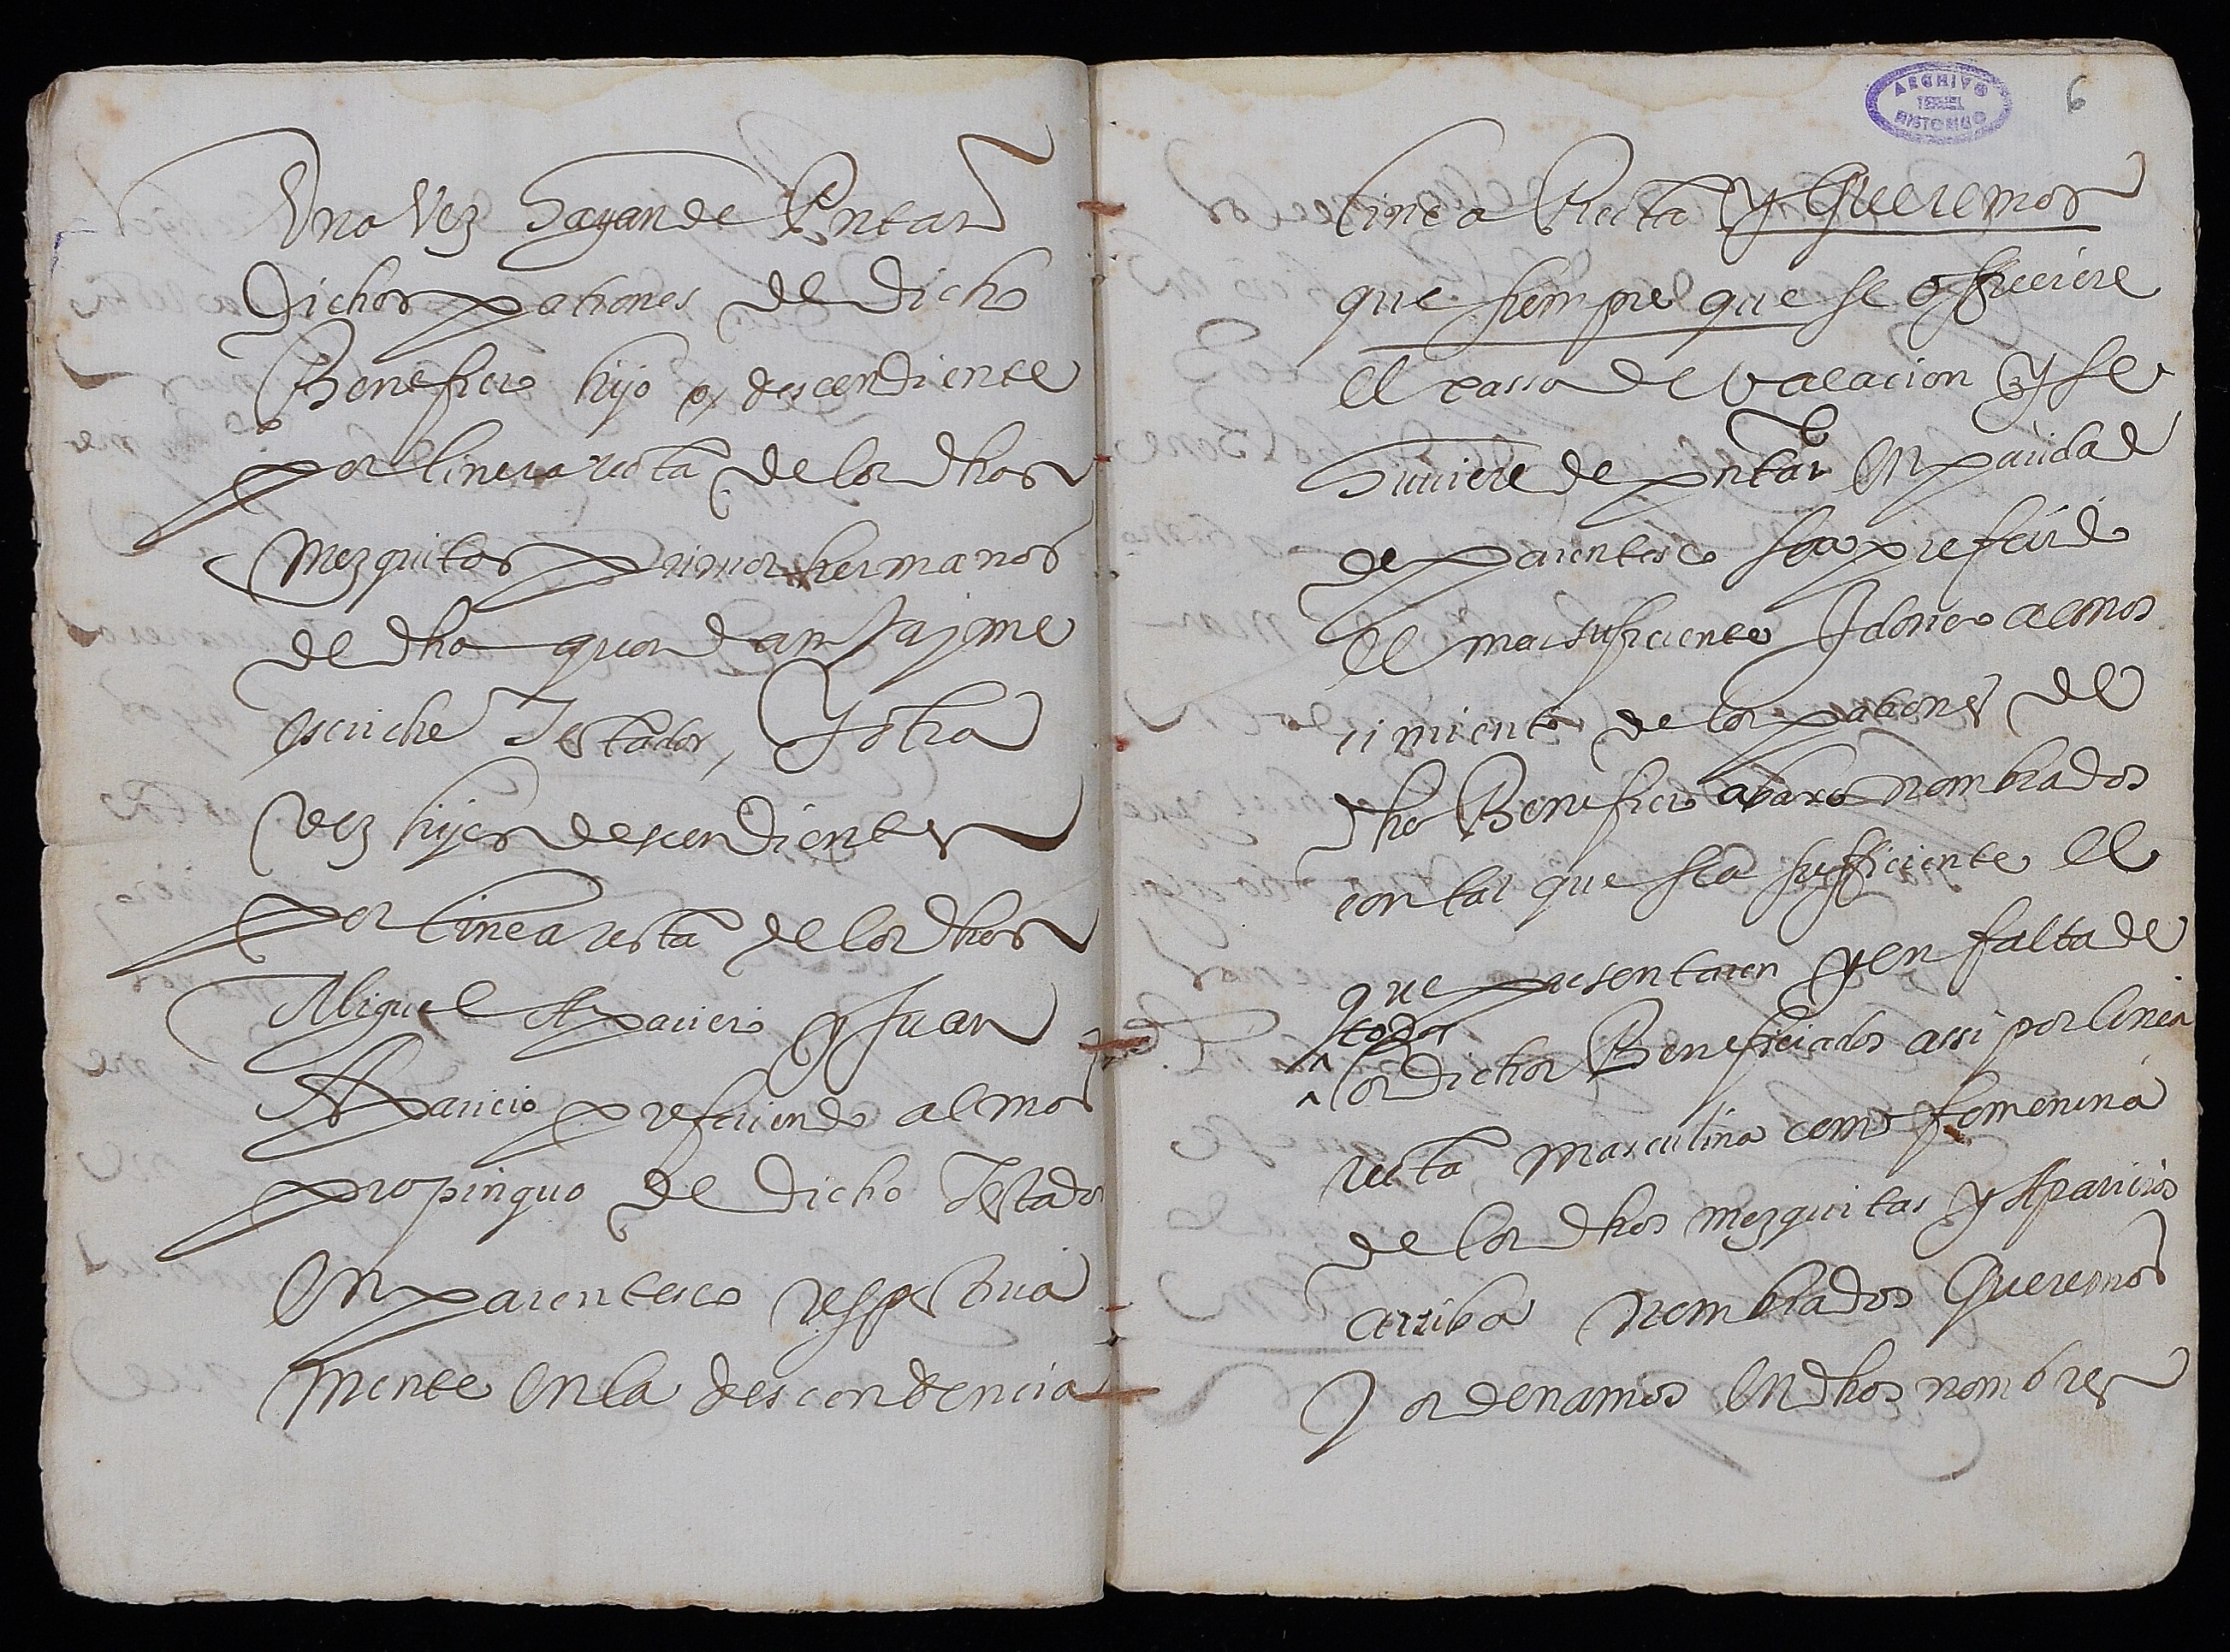 Una Vez hayan de Pntar
Dichos patrones de Dicho
Beneficio hijo o descendiente
por linera recta de los dhos
Mezquitas primos hermanos
de dho quondam Jayme
escriche Testador, Y otra
Vez hijos descendientes
por linea recta de los dhos
Miguel Aparicio y Juan
Aparicio prefiriendo al mas
propinquo de dicho Testador
en parentesco respectiua
mente en la descendencia
6
ARCHIVO
TERUEL
HISTORICO
linea Recta y Queremos
que siempre que se officiere
el casso de Vacacion y se
huuiere de pntar en paridad
de parentesco sea preferido
el mas suficiente Idoneo a conos
cimiento de los patrones de
dho Beneficio abaxo nombrados
con tal que sea sufficiente el
que presentaren y en falta de
todos
los dichos Beneficiados assi por linea
recta masculina como femenina
de los dhos mezquitas y Aparicios
arriba nombrados Queremos
Y ordenamos en dhos nombres